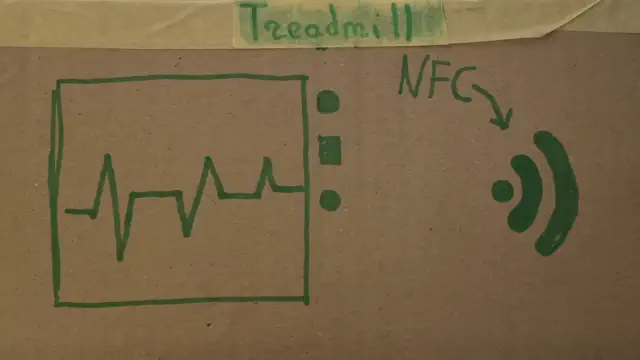 Treadmill
NFC